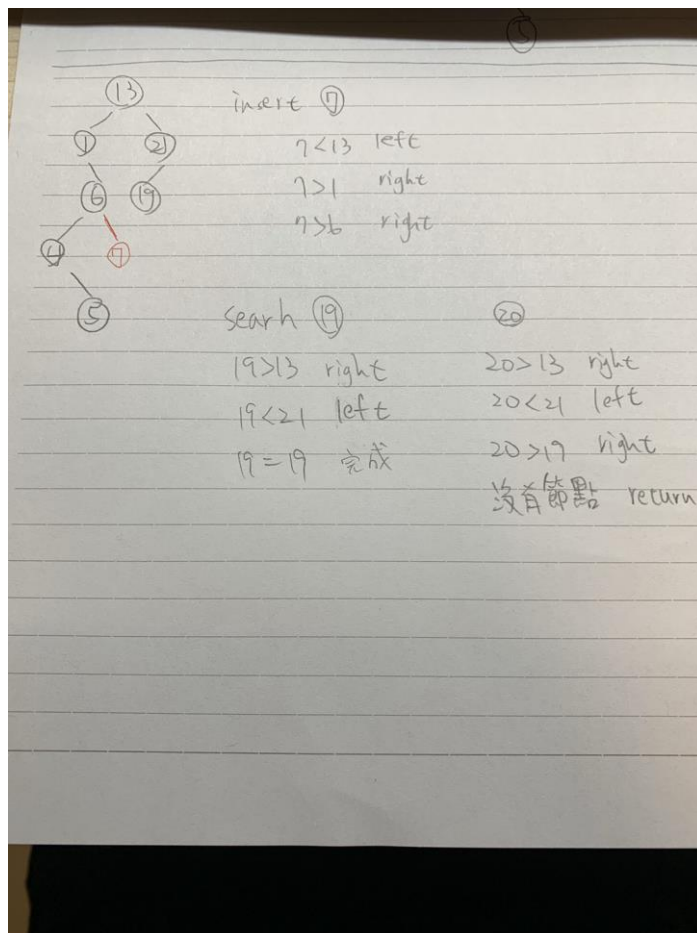 5
13
1 21
6 19
4 7
5
insert 7
7<13 left
7>1 right
7>6 right
searh 19
19>13 right
19<21 left
19=19 完成
20
20>13 right
20<21 left
20>19 right
沒有節點 return